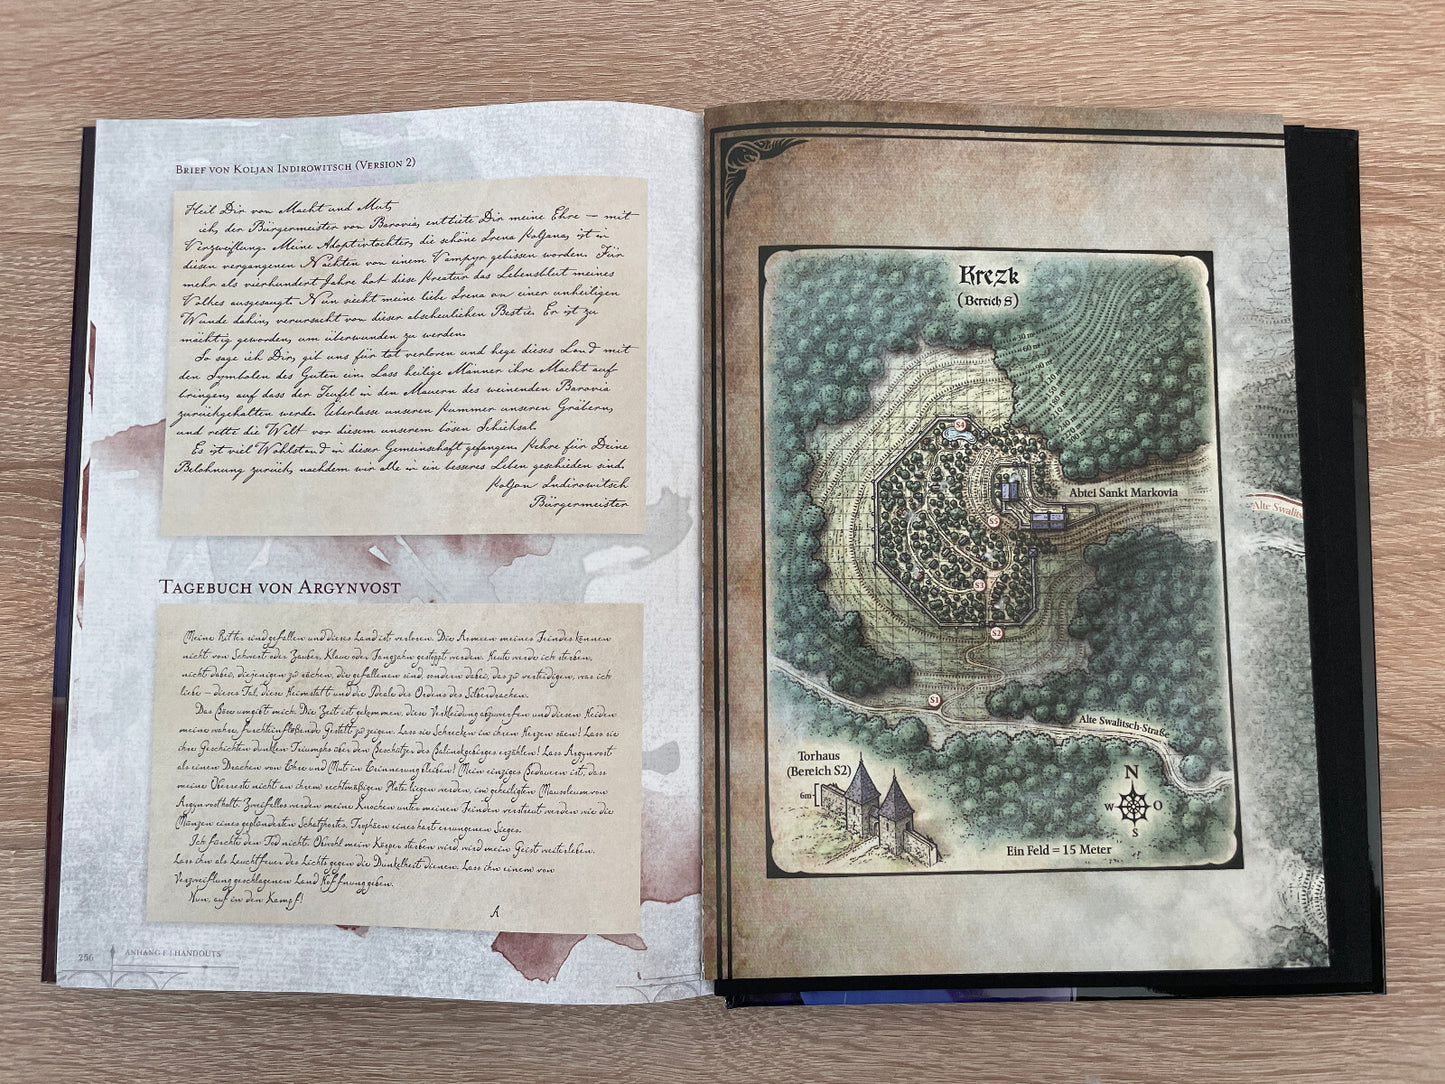 Brief von Koljan Indirowitsch (Version 2)
Heil Dir von Macht und Mut,
ich, der Bürgermeister von Barovia, entbiete Dir meine Ehre – mit
Verzweiflung. Meine Adoptivtochter, die schöne Irena Koljana, ist in
diesen vergangenen Nächten von einem Vampyr gebissen worden. Für
mehr als vierhundert Jahre hat diese Kreatur das Lebensblut meines
Volkes ausgesaugt. Nun siecht meine liebe Irena an einer unheiligen
Wunde dahin, verursacht von dieser abscheulichen Bestie. Er ist zu
mächtig geworden, um überwunden zu werden.
So sage ich Dir, gib uns für tot verloren und hege dieses Land mit
den Symbolen des Guten ein. Lass heilige Männer ihre Macht auf
bringen, auf dass der Teufel in den Mauern des weinenden Barovia
zurückgehalten werde. Überlasse unseren Kummer unseren Gräbern,
und rette die Welt vor diesem unserem bösen Schicksal.
Es ist viel Wohlstand in dieser Gemeinschaft gefangen. Kehre für Deine
Belohnung zurück, nachdem wir alle in ein besseres Leben geschieden sind.
Koljan Indirowitsch
Bürgermeister
Tagebuch von Argynvost
Meine Ritter sind gefallen und dieses Land ist verloren. Die Armeen meines Feindes können
nicht von Schwert oder Zauber, Klaue oder Fangzahn gestoppt werden. Heute werde ich sterben,
nicht dabei, diejenigen zu rächen, die gefallenen sind, sondern dabei, das zu verteidigen, was ich
liebe – dieses Tal, diese Heimstatt und die Ideale des Ordens des Silberdrachen.
Das Böse umgibt mich. Die Zeit ist gekommen, diese Verkleidung abzuwerfen und diesen Heiden
meine wahre, furchteinflößende Gestalt zu zeigen. Lass sie Schrecken in ihren Herzen säen! Lass sie
ihre Geschichten dunklen Triumphs über den Beschützer des Balinokgebirges erzählen! Lass Argynvost
als einen Drachen von Ehre und Mut in Erinnerung bleiben! Mein einziges Bedauern ist, dass
meine Überreste nicht an ihrem rechtmäßigen Platz liegen werden, im geheiligten Mausoleum von
Argynvostholt. Zweifellos werden meine Knochen unter meinen Feinden verstreut werden wie die
Münzen eines geplünderten Schatzhortes, Trophäen eines hart errungenen Sieges.
Ich fürchte den Tod nicht. Obwohl mein Körper sterben wird, wird mein Geist weiterleben.
Lass ihn als Leuchtfeuer des Lichts gegen die Dunkelheit dienen. Lass ihn einem von
Verzweiflung geschlagenen Land Hoffnung geben.
Nun, auf in den Kampf!
A
256
Anhang F | Handouts
Krezk
(Bereich S)
30 m
60 m
90 m
S4
Abtei Sankt Markovia
S5
S3
S2
S1
Alte Swalitsch-Straße
Torhaus
(Bereich S2)
6m
N
W O
S
Ein Feld = 15 Meter
Alte Swalits